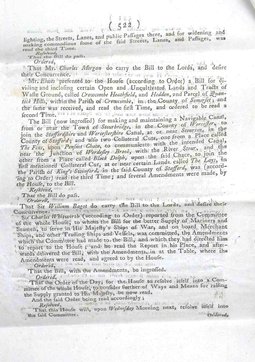 ( 522 )
lighting, the Streets, Lanes, and public Passages there, and for widening and
making commodious some of the said Streets, Lanes, and Passages, was
read the third Time.
Resolved,
That the Bill do pass.
Ordered,
That Mr. Charles Morgan do carry the Bill to the Lords, and desire
their Concurrence.
Mr. presented to the House (according to Order) a Bill for di-
viding and inclosing certain Open and Uncultivated Lands and Tracts of
Waste Ground, called Crewcombe Heathfield, and Hidden, and Parcel of
Hill, within the Parish of Crewcombe, in the County of Somerset; and
the same was received, and read the first Time, and ordered to be read a
second Time.
The Bill (now ingrossed) for making and maintaining a Navigable Canal,
from or near the Town of Stourbridge, in the County of Worcester, to
join the Staffordshire and Worcestershire Canal, at or near Stourton, in the
County of Stafford; and also two Collateral Cuts, one from a Place called
The Fens, upon Pensnett Chase, to communicate with the intended Canal,
near the Junction of Wordesley Brook, with the River Stour, and the
other from a Place called Black Delph, upon the said Chase, to join the
first mentioned Collateral Cut, at or near certain Lands called The Leys, in
the Parish of King's Swinford, in the said County of Stafford, was (accord-
ing to Order) read the third Time; and several Amendments were made, by
the House, to the Bill.
Resolved,
That the Bill do pass.
Ordered,
That Sir William Bagot do carry the Bill to the Lords, and desire their
Concurrence.
Sir Charles Whitworth (according to Order) reported from the Committee
of the whole House, to whom the Bill for the better Supply of Mariners and
Seamen, to serve in His Majesty's Ships of War, and on board Merchant
Ships, and other Trading Ships and Vessels, was committed, the Amendments
which the Committee had made to the Bill, and which they had directed him
to report to the House; and he read the Report in his Place, and after-
wards delivered the Bill, with the Amendments, in at the Table, where the
Amendments were read, and agreed to by the House.
Ordered,
That the Bill, with the Amendments, be ingrossed.
Ordered,
That the Order of the Day, for the House to resolve itself into a Com-
mittee of the whole House, to consider further of Ways and Means for raising
the Supply granted to His Majesty, be now read.
And the said Order being read accordingly;
Resolved,
That this House will, upon Wednesday Morning next, resolve itself into
the said Committee.
Ordered,